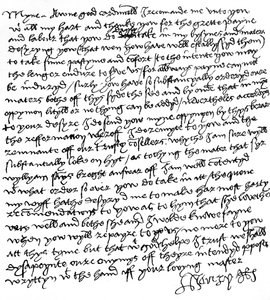 Myne awne good cardinall I recomande me unto yow
w^t all my hart and thanke yow for the grette payne
and labour that yow do dayly take in my bysynes and maters
desyryng yow that wen yow have well establysshyd them
to take summe pastyme and comfort to the intente yow may
the lenger endure to serve us for allways payne can not
be induryd surly yow have so substancyally orderyd oure
maters bothe off thys syde the see and byonde that in myne
oppynion lityll or no thyng can be addyd neverthelesse accordyng
to your desyre I do send yow myne oppynion by thys berar
the refformacion wheroff I do remytte to yow and the
remnante off our trusty consellers whyche I am sure wyll
substantially loke on hyt as tochyng the mater that syr
wyllyam says broght answar off I am well contentyd
w^t what order so ever yow do take in itt the quene
my wyff hathe desyryd me to make har most harty
recommendations to yow as to hym that she lovethe
very well and bothe she and I wolde knowe fayne
when yow wyll repayre to us no more to yow
att thys tyme but that w^t gods helpe I trust we shall
dysapoynte oure enymys off theyre intendyd purpose
wryttyn w^t the hand off your lovyng master
Henry R